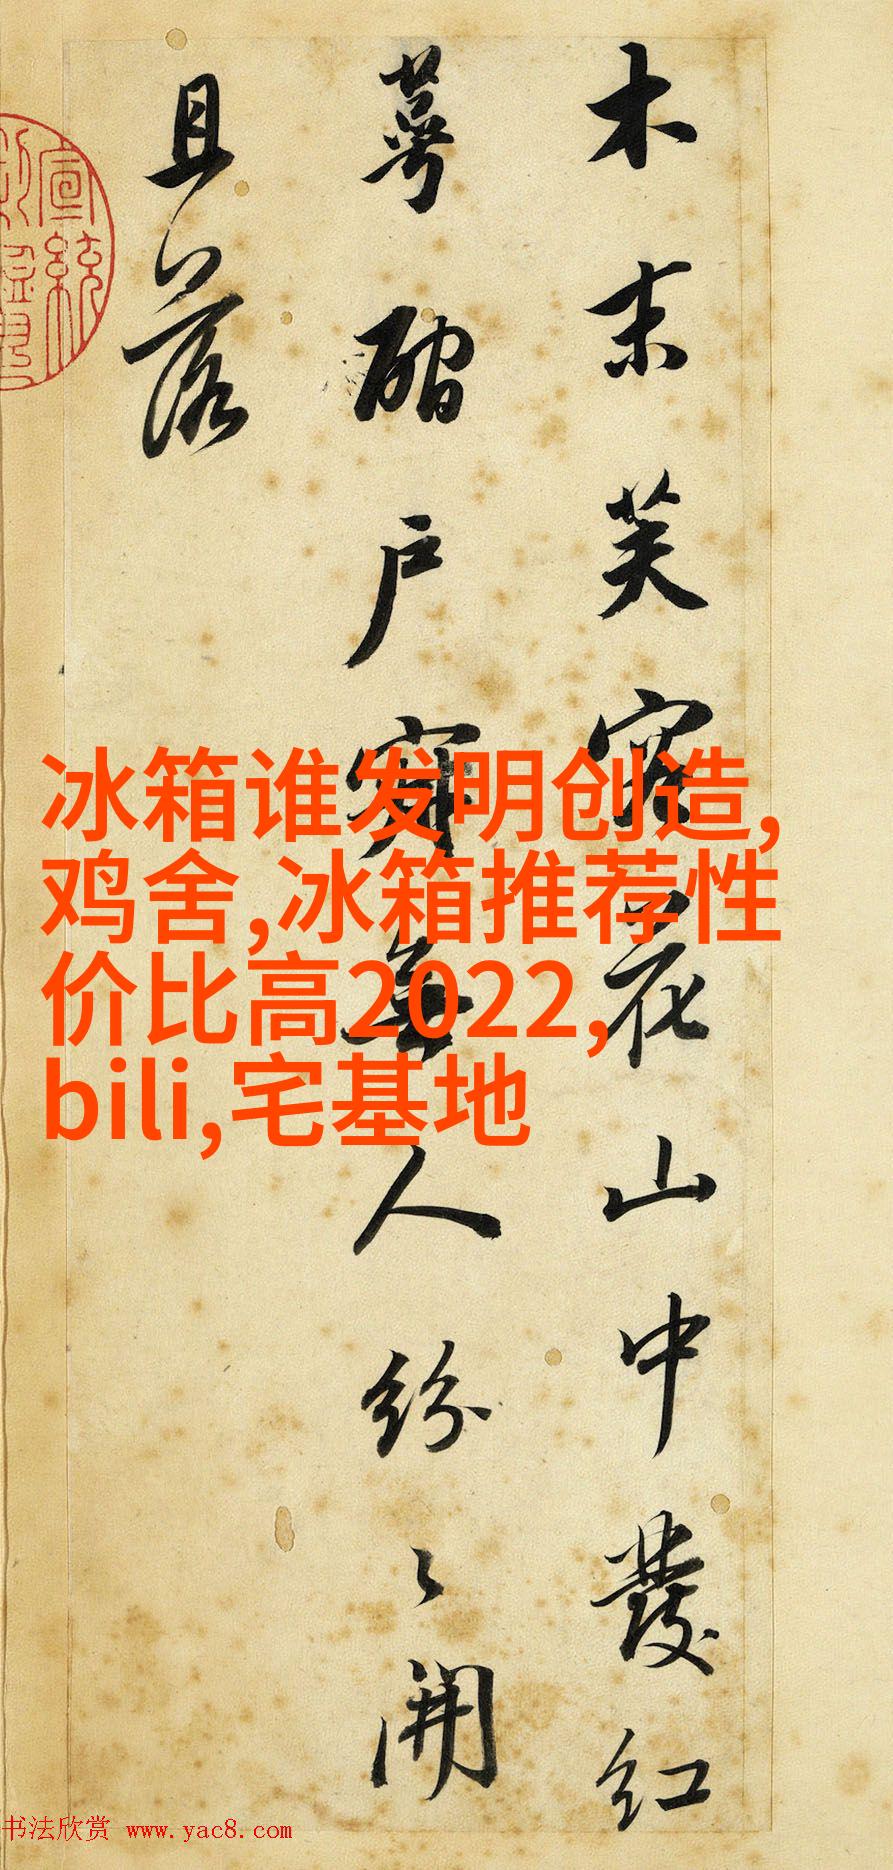 木末芙蓉花山中發紅
萼磵戶寂無人紛〻開
且落
宣統
冰箱谁发明创造,
鸡舍,冰箱推荐性
价比高2022,
bili,宅基地
书法欣赏 www.yac8.com